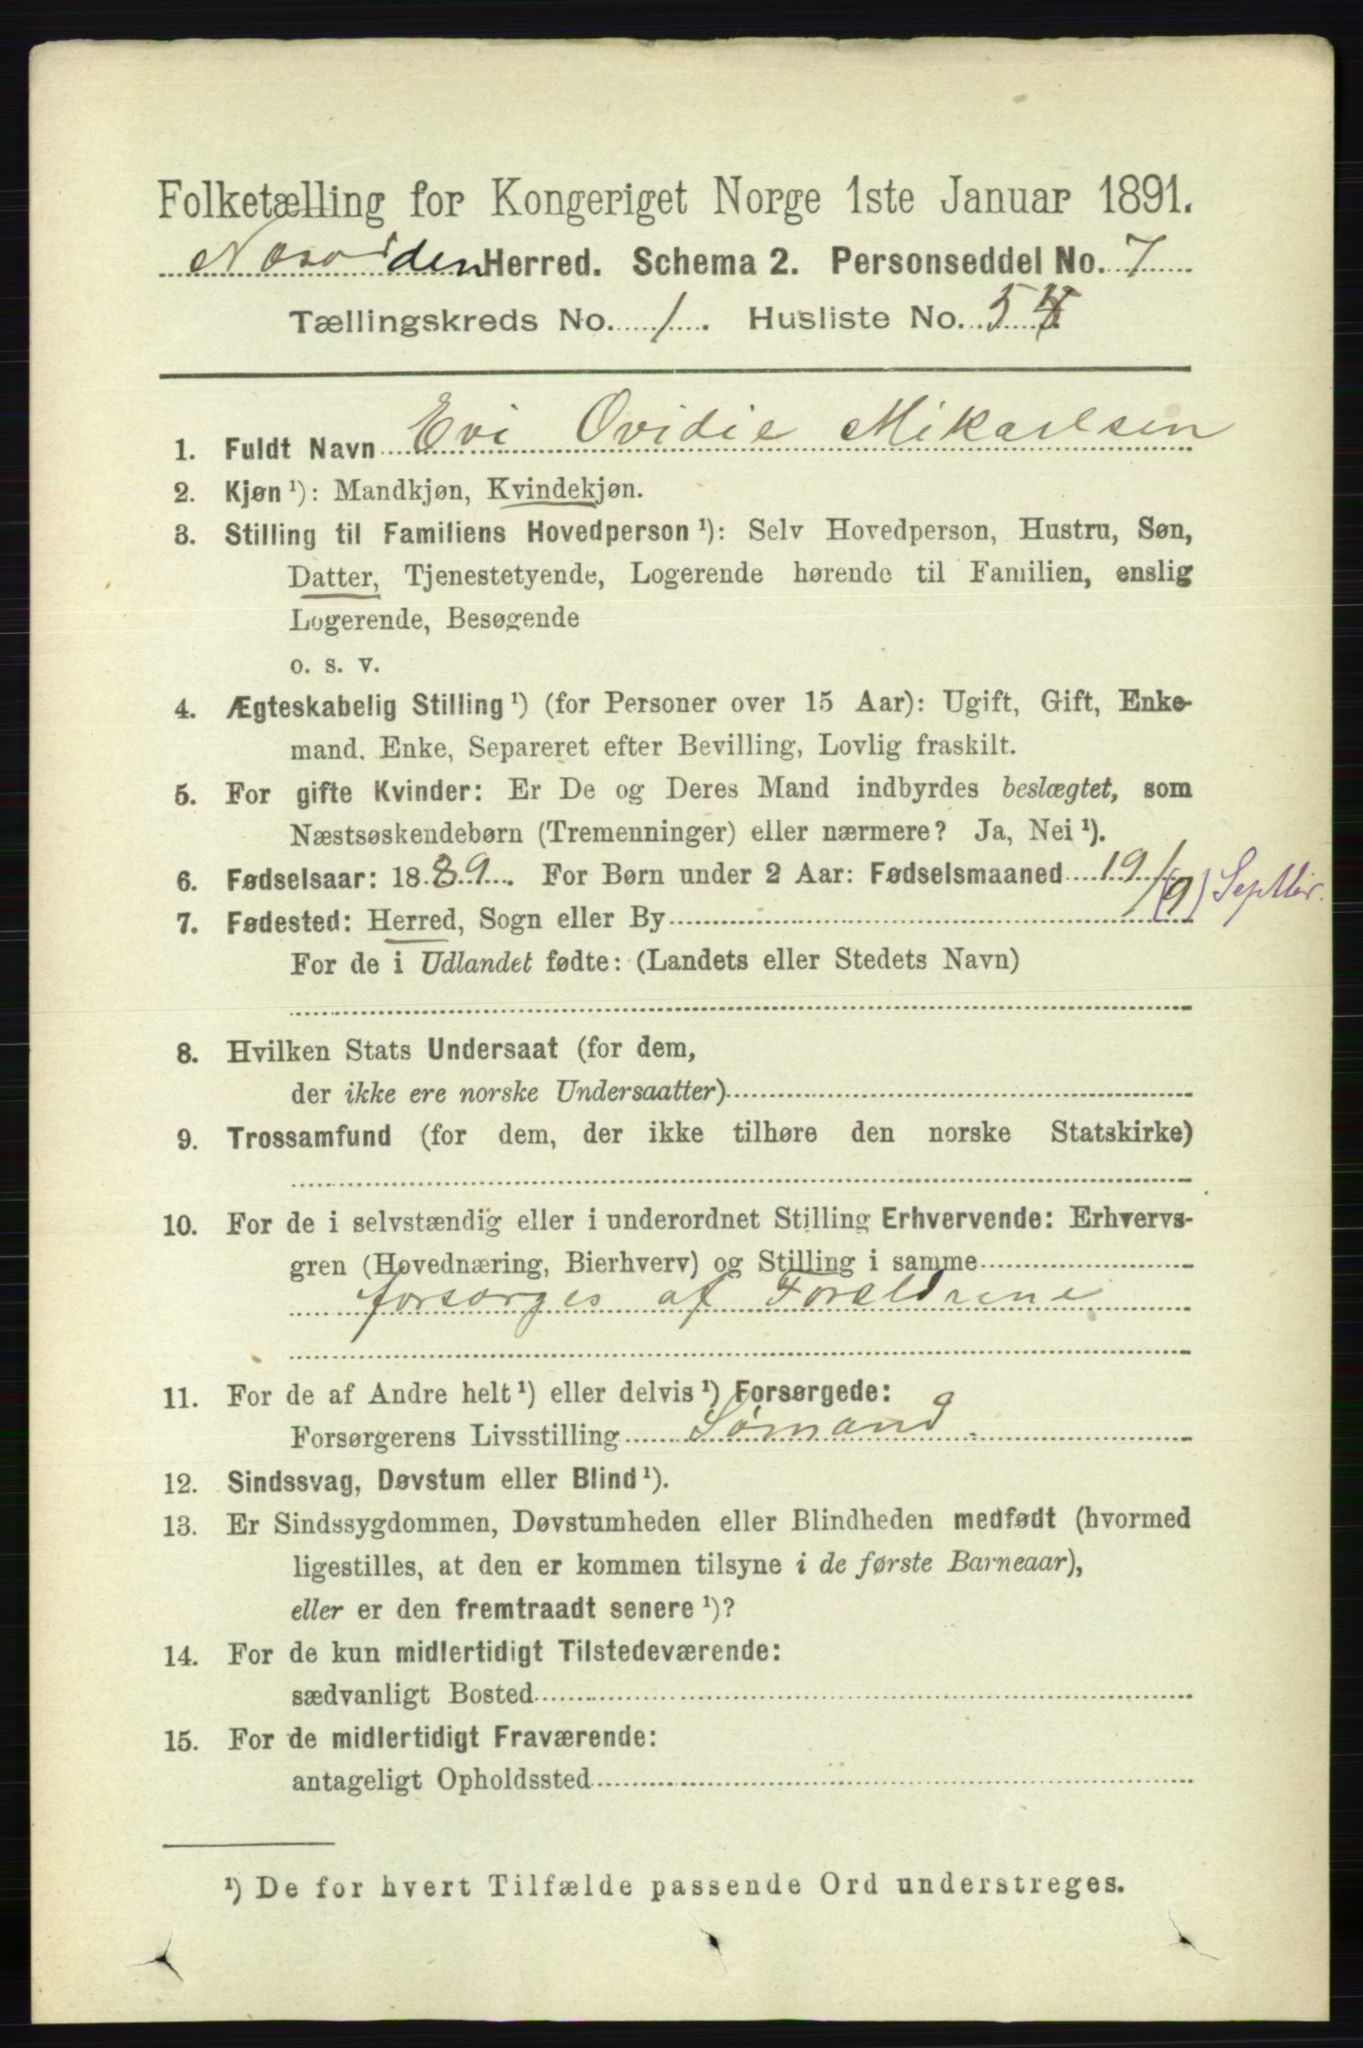 Folketælling for Kongeriget Norge 1ste Januar 1891.
Nesodden Herred. Schema 2. Personseddel No. 7
Tællingskreds No. 1. Husliste No. 54
1. Fuldt Navn Evi Ovidie Mikaelsen
2. Kjøn ¹): Mandkjøn, Kvindekjøn.
3. Stilling til Familiens Hovedperson ¹): Selv Hovedperson, Hustru, Søn,
Datter, Tjenestetyende, Logerende hørende til Familien, enslig
Logerende, Besøgende
o. s. v.
4. Ægteskabelig Stilling ¹) (for Personer over 15 Aar): Ugift, Gift, Enke-
mand, Enke, Separeret efter Bevilling, Lovlig fraskilt.
5. For gifte Kvinder: Er De og Deres Mand indbyrdes beslægtet, som
Næstsøskendebørn (Tremenninger) eller nærmere? Ja, Nei ¹).
6. Fødselsaar: 1889. For Børn under 2 Aar: Fødselsmaaned 19/9 Septbr.
7. Fødested: Herred, Sogn eller By
For de i Udlandet fødte: (Landets eller Stedets Navn)
8. Hvilken Stats Undersaat (for dem,
der ikke ere norske Undersaatter)
9. Trossamfund (for dem, der ikke tilhøre den norske Statskirke)
10. For de i selvstændig eller i underordnet Stilling Erhvervende: Erhvervs-
gren (Hovednæring, Bierhverv) og Stilling i samme
forsørges af Forældrene
11. For de af Andre helt ¹) eller delvis ¹) Forsørgede:
Forsørgerens Livsstilling Sømand.
12. Sindssvag, Døvstum eller Blind ¹).
13. Er Sindssygdommen, Døvstumheden eller Blindheden medfødt (hvormed
ligestilles, at den er kommen tilsyne i de første Barneaar),
eller er den fremtraadt senere ¹)?
14. For de kun midlertidigt Tilstedeværende:
sædvanligt Bosted
15. For de midlertidigt Fraværende:
antageligt Opholdssted
¹) De for hvert Tilfælde passende Ord understreges.